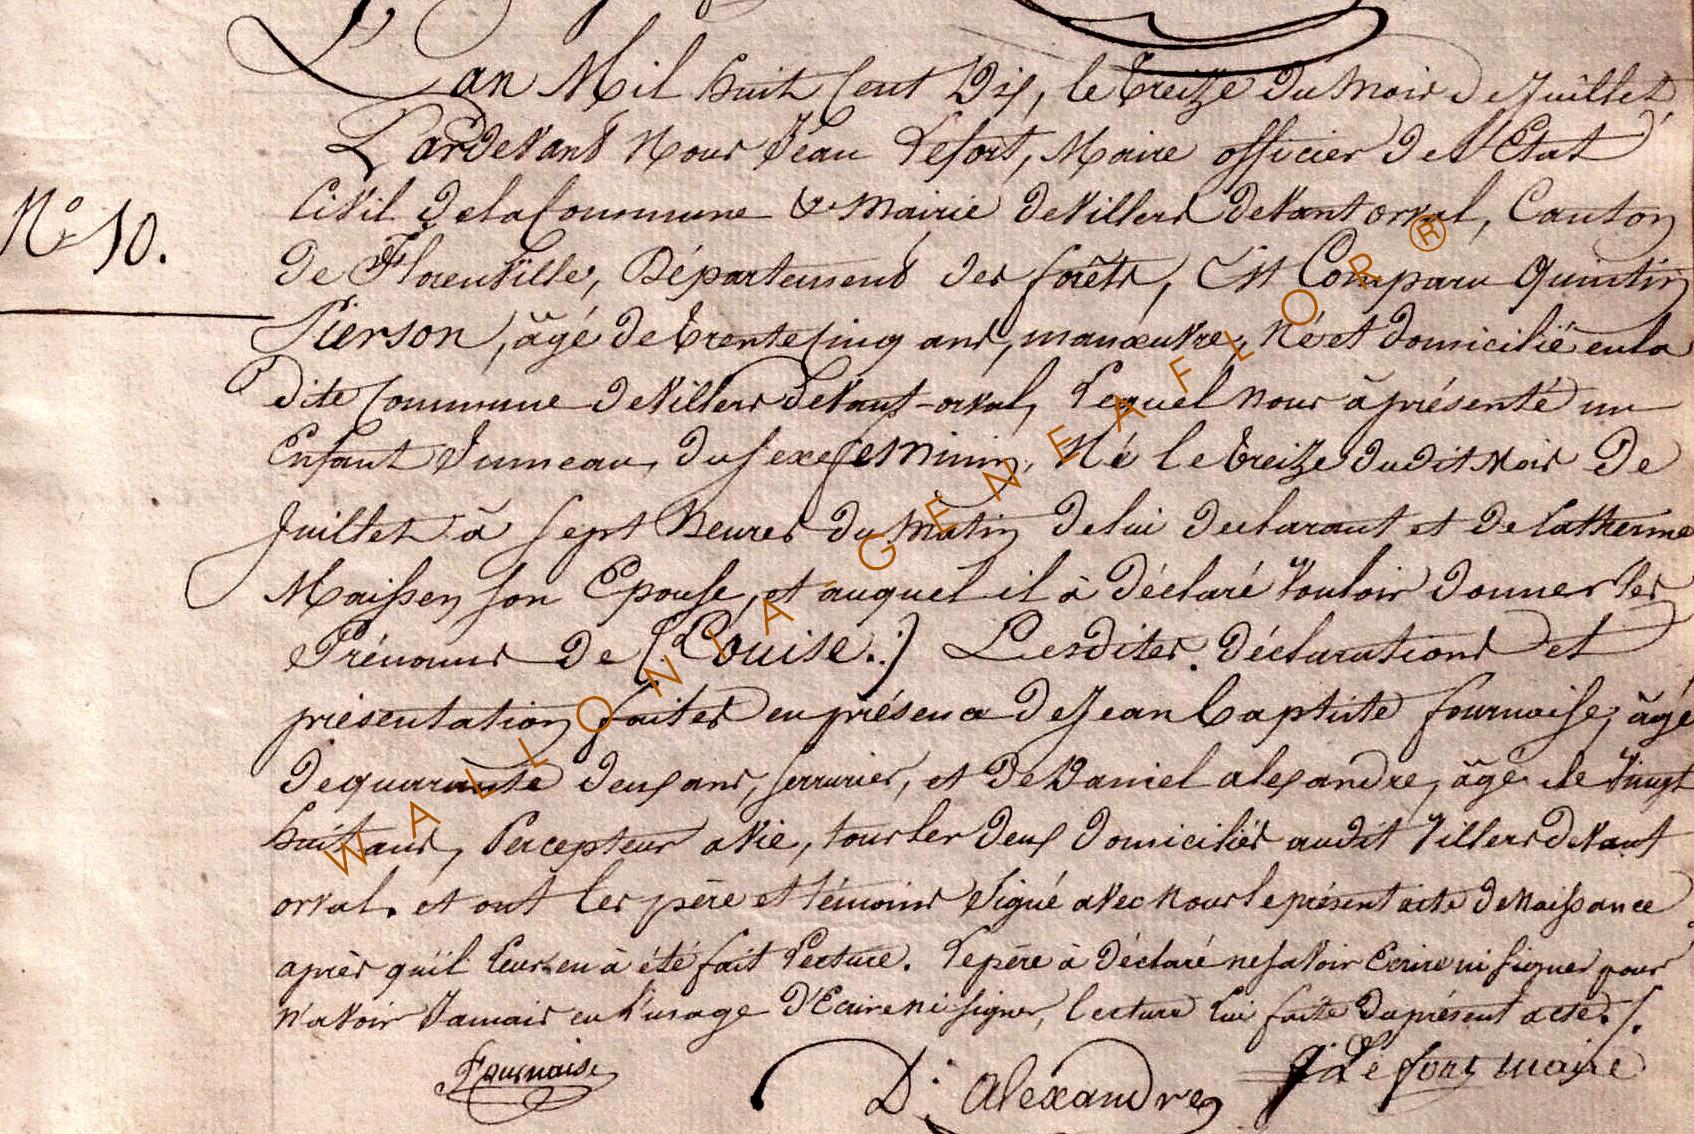 L'an Mil huit Cent Dix, le treize du mois de Juillet,
Pardevant Nous Jean Lefort, Maire officier de l'Etat
Civil de la Commune & Mairie de Villers devant orval, Canton
N.o 10.
de Florenville, Département des forêts, Est Comparu Quintin
Pierson, âgé de trente Cinq ans, manœuvre, Né et domicilié en la
dite Commune de Villers devant-orval, Lequel nous à présenté un
Enfant Jumeau, du Sexe feminin, Né le treize dudit Mois De
Juillet à Sept heures du Matin de lui declarant et de Catherine
Maissen son Epouse, et auquel il à déclaré Vouloir donner les
Prénoms de (Louise.) Lesdites déclarations et
présentation faites en présence de Jean baptiste fournaise, âgé
de quarante deux ans, serrurier, et de Daniel alexandre, âgé de Vingt
huit ans, Percepteur a Vie, tous les deux domiciliés audit Villers devant
orval. et ont les père et témoins Signé avec nous le présent acte de Naissance
après qu'il leur en à été fait Lecture. Le père à déclaré ne savoir Ecrire ni signer pour
n'avoir Jamais eu l'usage d'Ecrire ni signer, lecture lui faite du présent acte./.
Fournaise
D. Alexandre
J. Lefort maire
WALLONIA-GENEAFLOR®